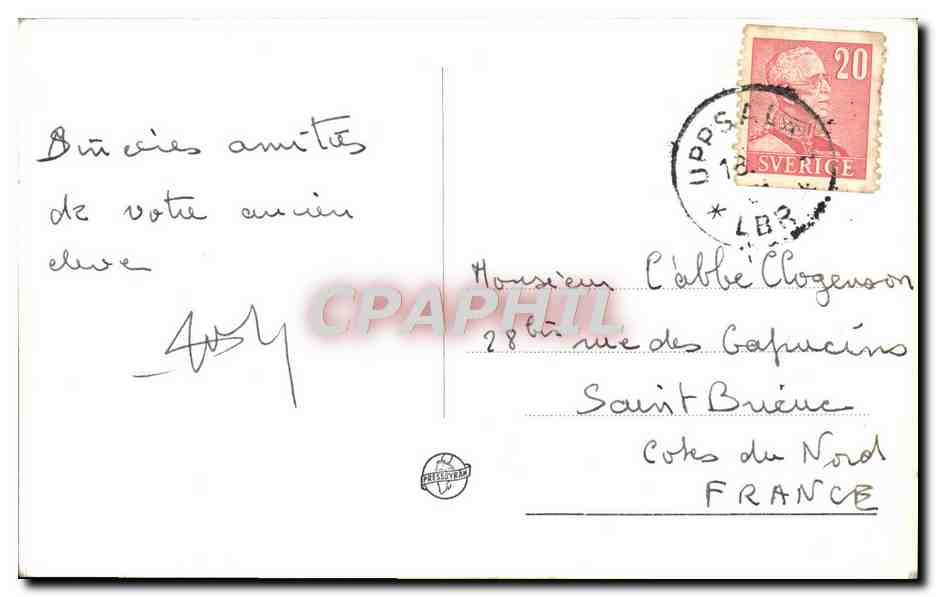 Sincères amitiés
de votre ancien
élève
Monsieur l'abbé Clogenson
28 bis rue des Capucins
Saint Brieuc
Cotes du Nord
FRANCE
20
SVERIGE
UPPSALA
18.
LBR
CPAPHIL
PRESSBYRÅN